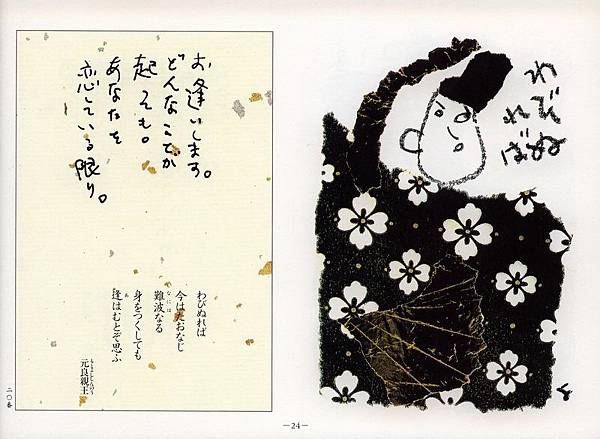 わびぬ
れば
お逢いします。
どんなことが
起ても。
あなたを
恋している限り。
わびぬれば
今はたおなじ
難波なる
身をつくしても
逢はむとぞ思ふ
元良親王
二〇番
—24—